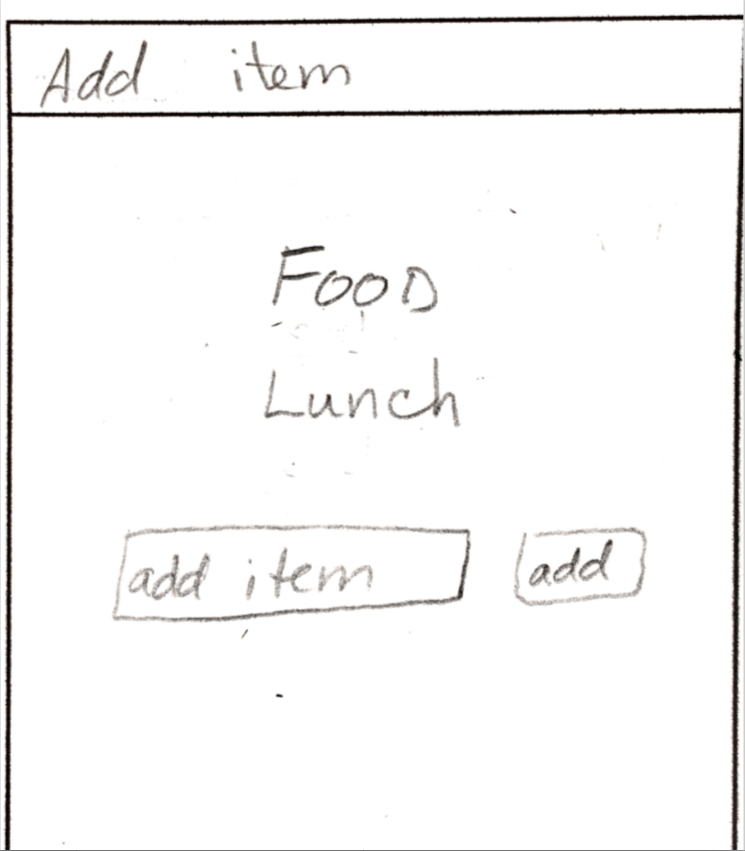 Add item
FOOD
Lunch
add item
add